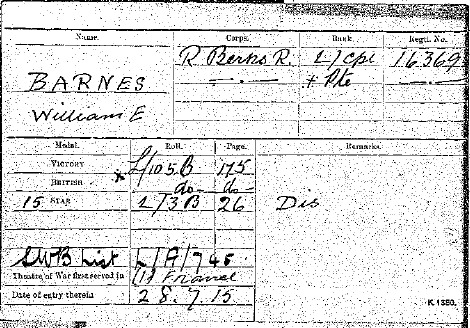 Name. Corps. Rank. Regtl. No.
R. Berks R. L/Cpl 16369
BARNES —"— + Pte
William E
Medal. Roll. Page. Remarks.
VICTORY L/105 B 175
BRITISH do do
15 STAR L/3 B 26 Dis
SWB List
Theatre of War first served in (1) France
Date of entry therein 28.7.15
K. 1380.